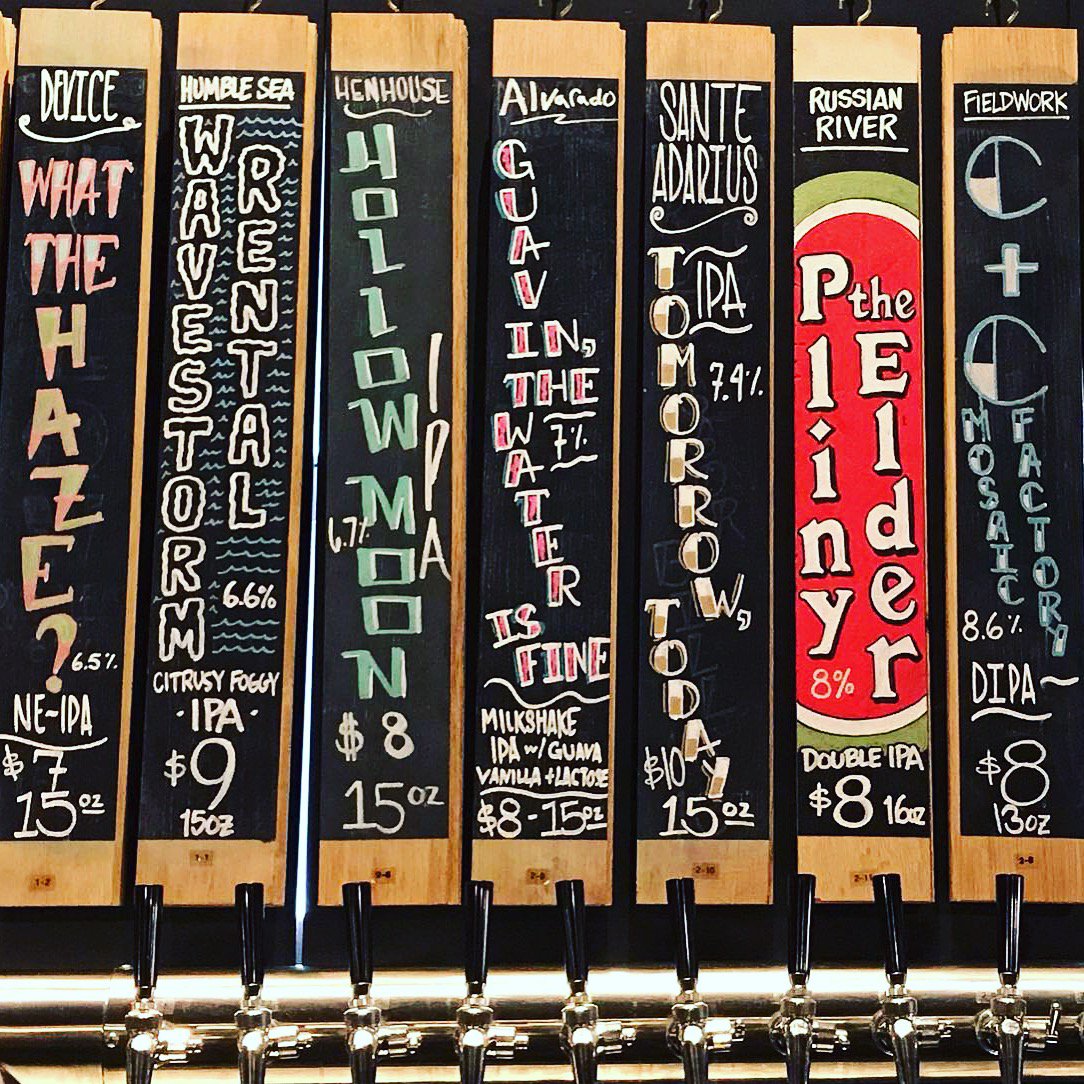 DEVICE
WHAT
THE
HAZE?
6.5%
NE-IPA
$7
15oz
1-2
HUMBLE SEA
WAVESTORM
RENTAL
6.6%
CITRUSY FOGGY
·IPA·
$9
15oz
HENHOUSE
HOllOW MOON
IPA
6.7%
$8
15oz
Alvarado
GUAVA
IN,
THE
WATER
7%
IS
FINE
MILKSHAKE
IPA w/ GUAVA
VANILLA + LACTOSE
$8-15oz
SANTE
ADARIUS
TOMORROW,
TODAY
IPA
7.4%
$10
15oz
2-10
RUSSIAN
RIVER
Pliny
the
Elder
8%
DOUBLE IPA
$8 16oz
FIELDWORK
C
+
C
MOSAIC
FACTORY
8.6%
DIPA~
$8
13oz